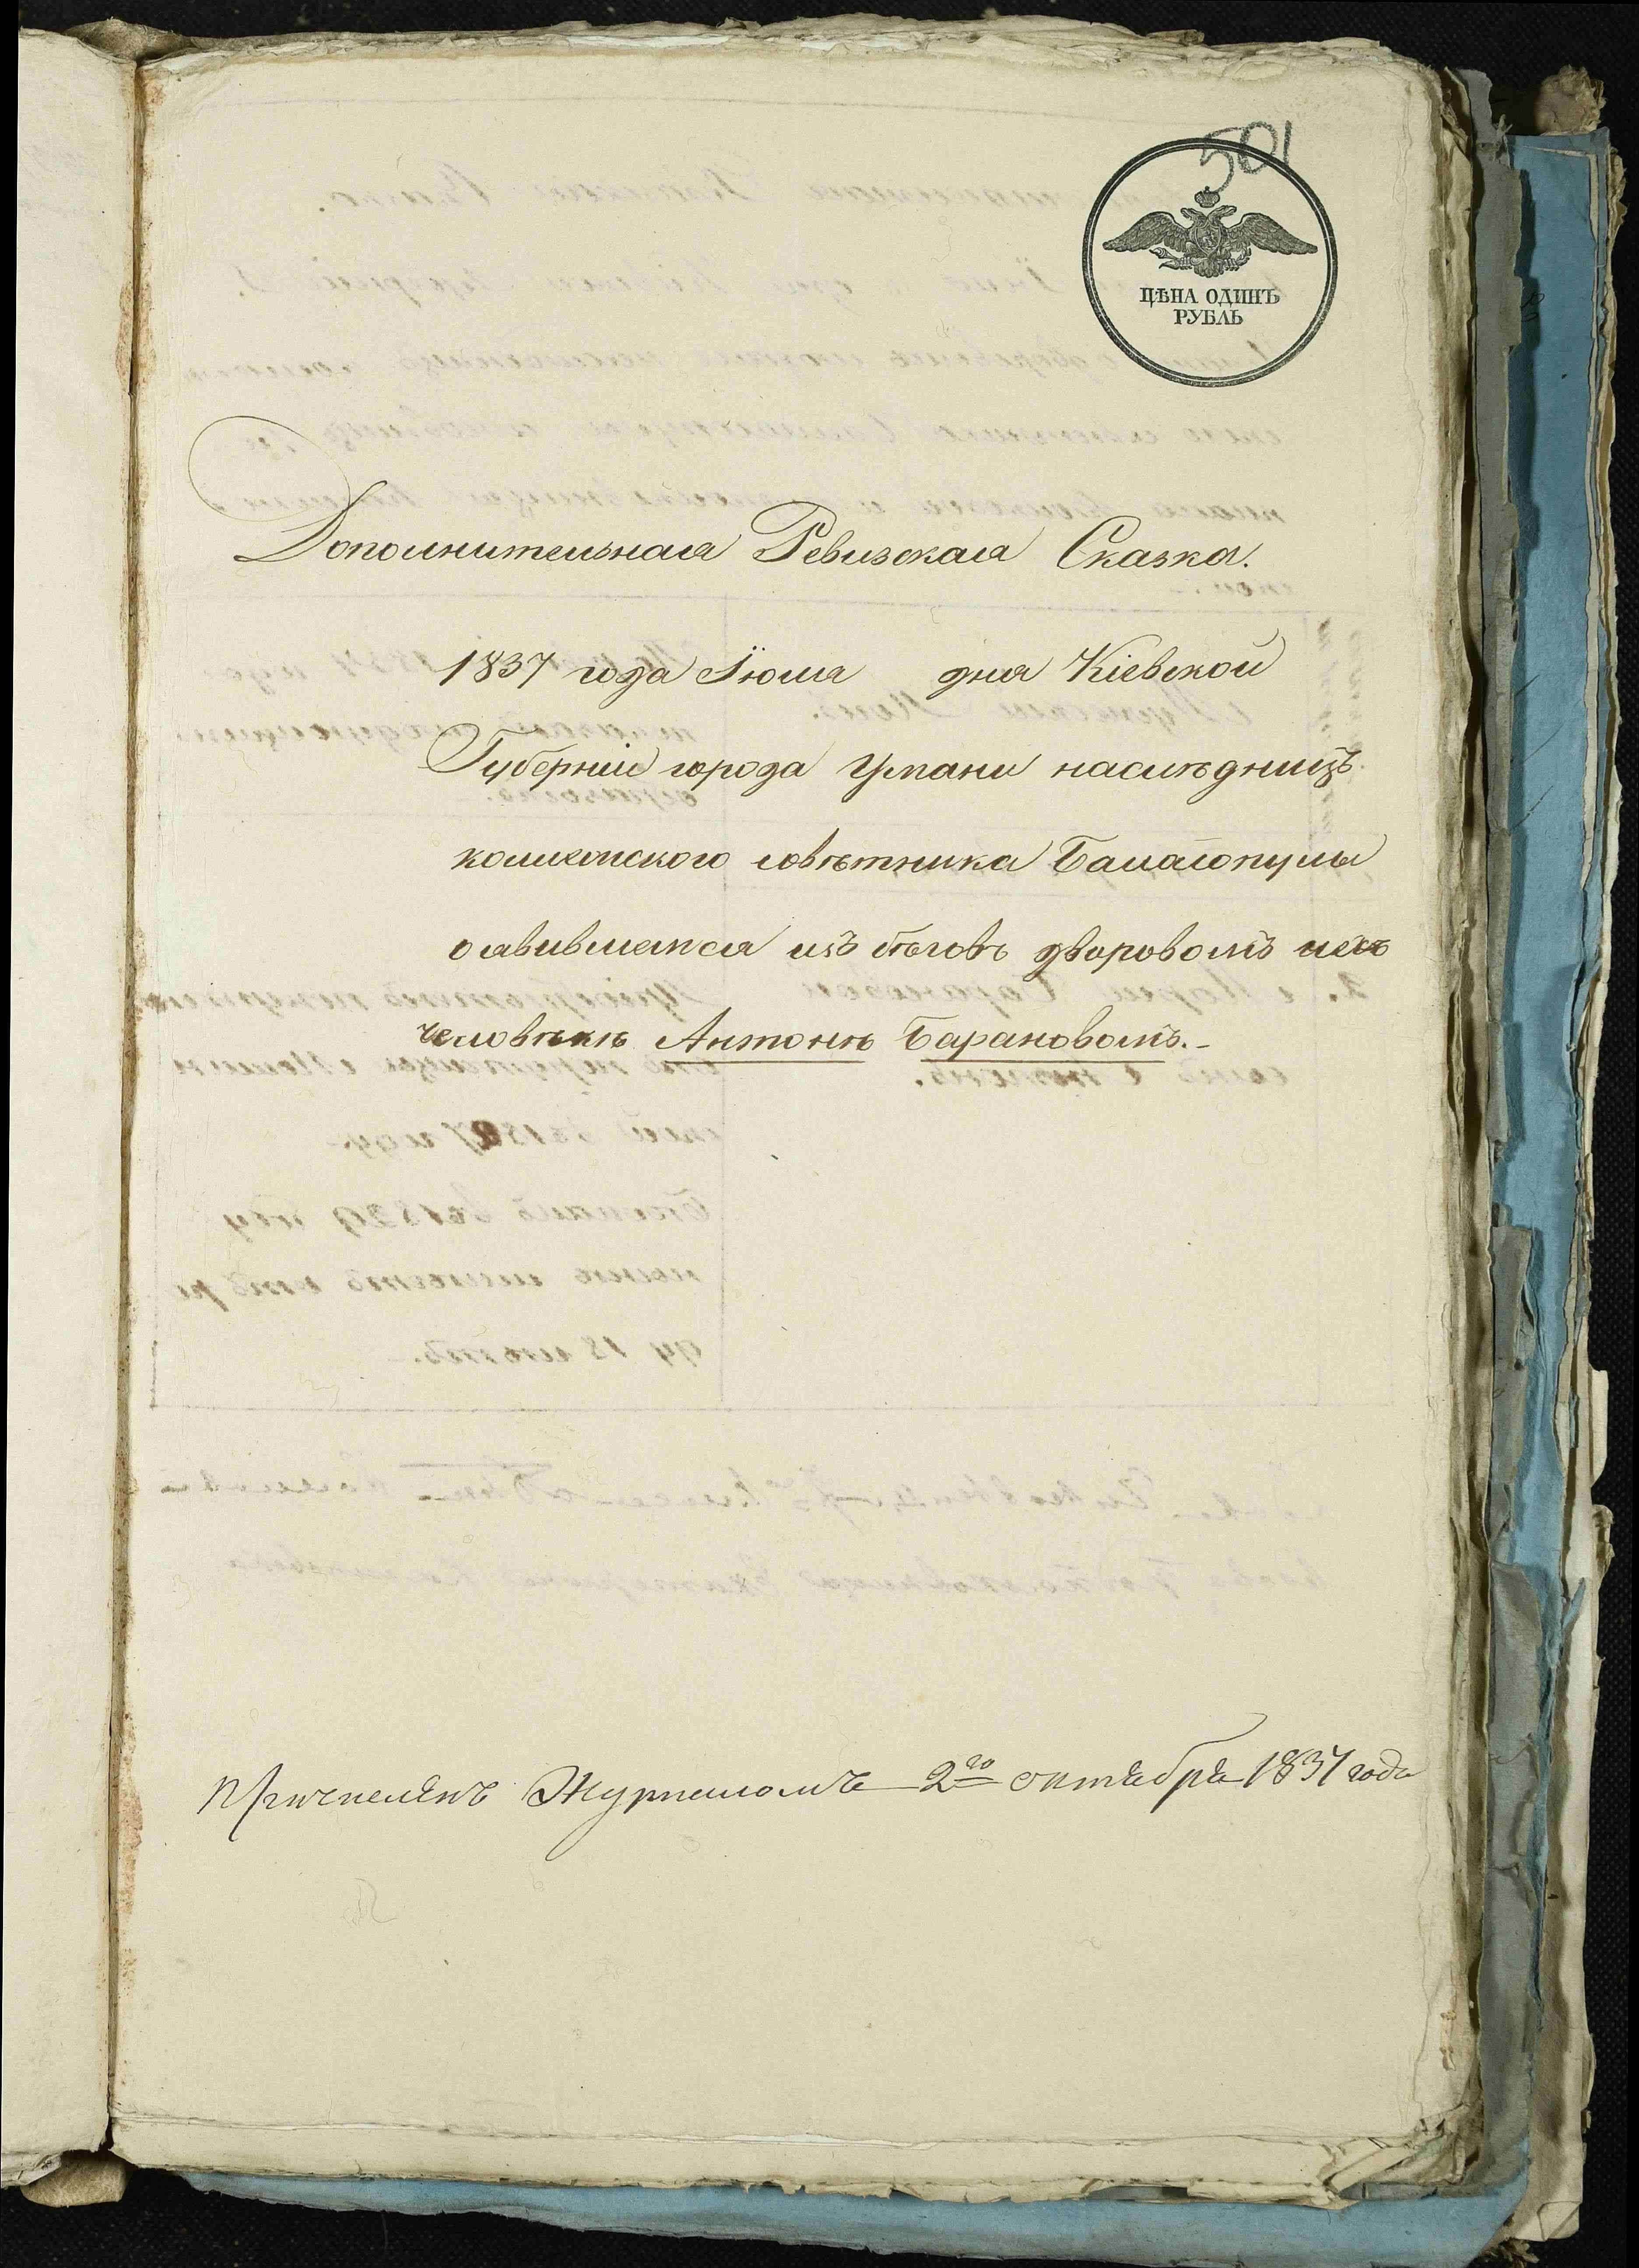 501
ЦѢНА ОДИНЪ
РУБЛЬ
Дополнительная Ревизская Сказка.
1837 года Iюля дня Кіевской
Губерніи города Умани наслѣдницъ
коллежского совѣтника
о явившемся изъ бѣговъ дворовомъ ихъ
человѣкѣ Антонѣ Барановомъ.-
Причисленъ Журналомъ 2го октября 1837 года